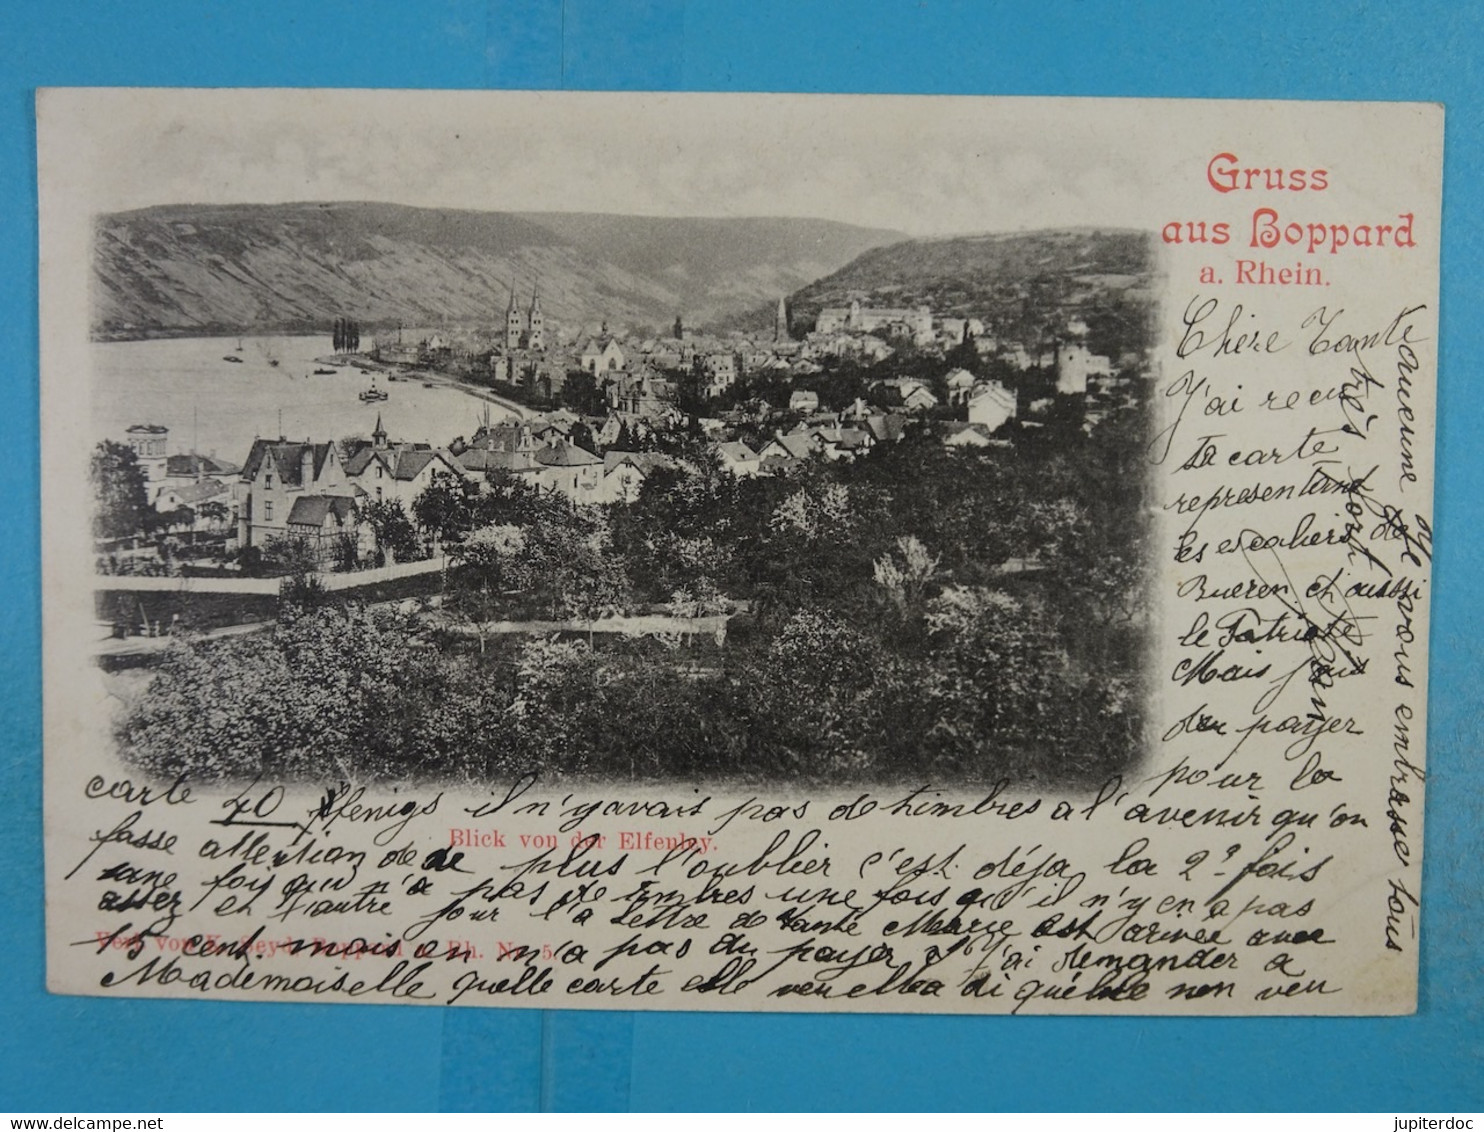 Gruss
aus Boppard
a. Rhein.
Chère Tante
J'ai recu
ta carte
representant
les escaliers de
Bueren et aussi
le
Mais j'ai
du payer
pour la
carte 40 pfenigs il n'y avait pas de timbres a l'avenir qu'on
fasse attention de de plus l'oublier c'est déja la 2e fois
une fois qu'il n'a pas de timbres une fois qu'il n'y en a pas
assez et l'autre jour la lettre de tante Marie est arrivée avec
15 cent. mais on n'a pas du payer J'ai demander a
Mademoiselle quelle carte elle
Je vous embrasse tous
Blick von der Elfenley.
Verl. von Boppard a. Rh. No. 5.
jupiterdoc